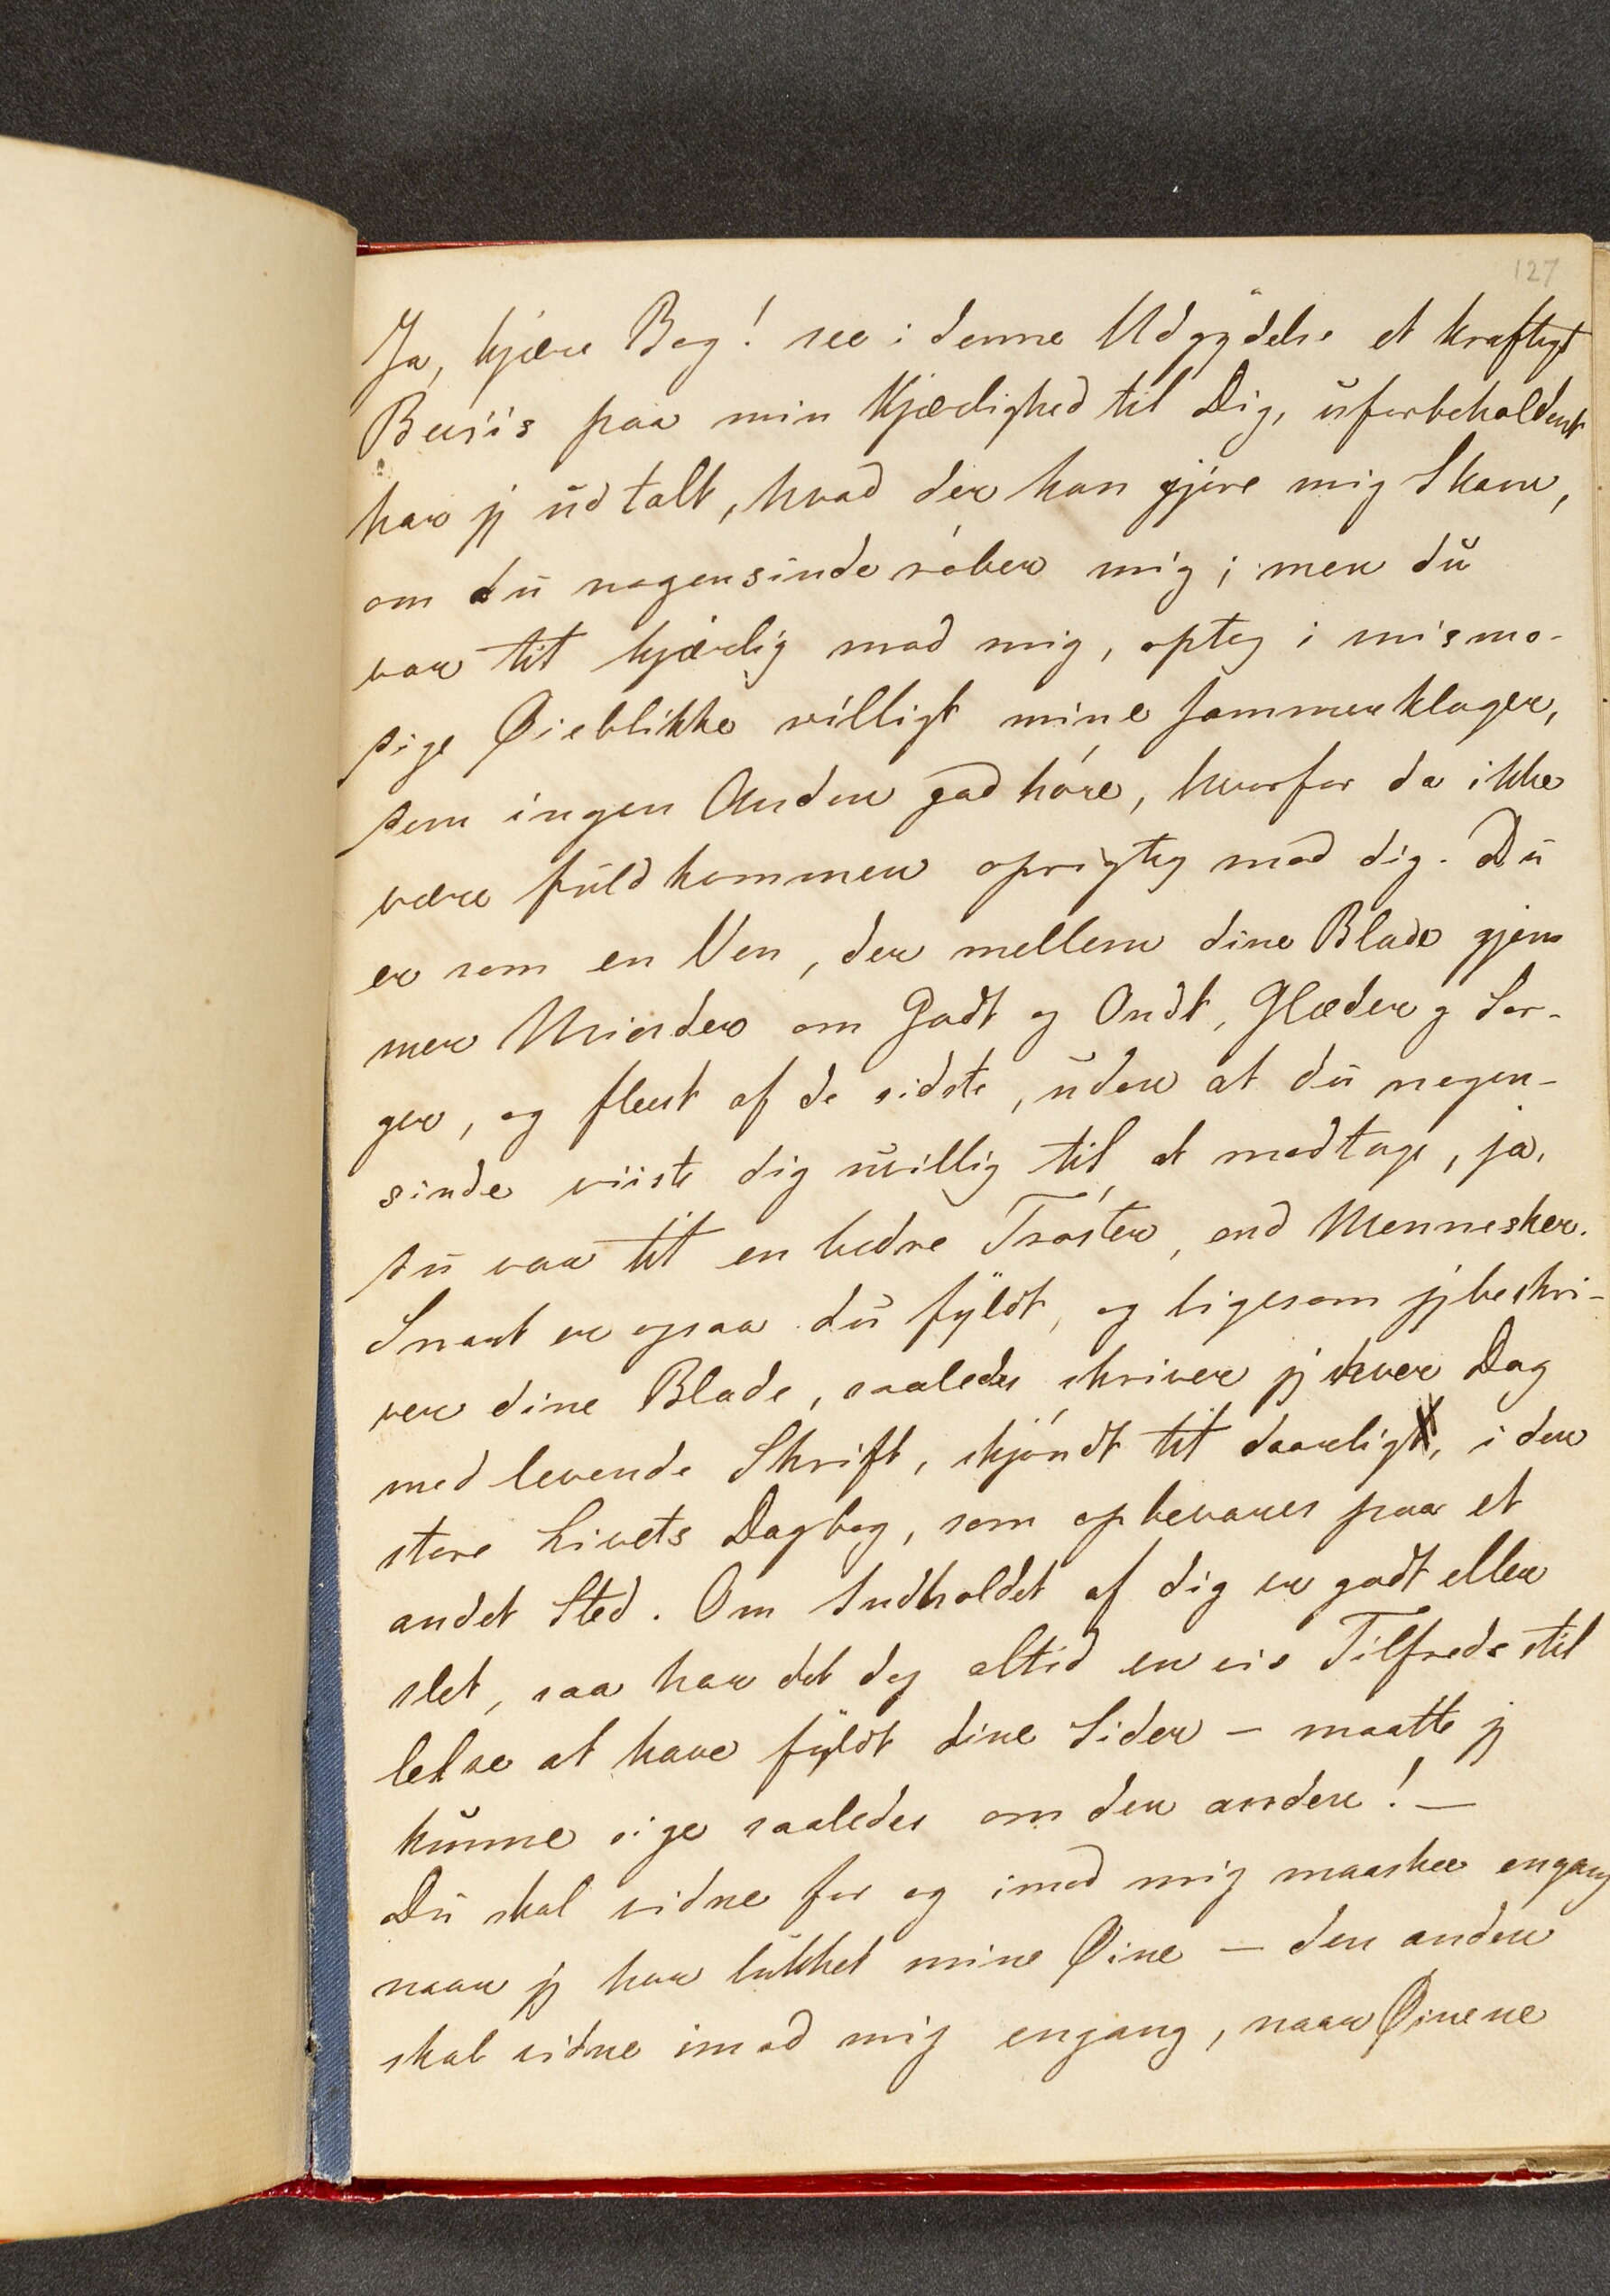 127
Ja, kjære Bog! see i denne Udgydelse et kraftigt
Beviis paa min Kjærlighed til Dig, uforbeholdent
har jeg udtalt, hvad der kan gjøre mig Skam,
om du nogensinde røber mig; men du
var tit kjærlig mod mig, optog i mismo-
dige Øieblikke villigt mine Jammerklager,
som ingen Anden gad høre, hvorfor da ikke
være fuldkommen oprigtig mod dig. Du
er som en Ven, der mellem dine Blade gjem
mer Minder om Godt og Ondt, Glæder og Sor-
ger, og fleest af de sidste, uden at du nogen-
sinde viiste dig uvillig til at modtage, ja,
du var tit en bedre Trøster, end Mennesker.
Snart er ogsaa du fyldt, og ligesom jeg beskri-
ver dine Blade, saaledes skriver jeg hver Dag
med levende Skrift, skjøndt tit daarlig, i den
store Livets Dagbog, som opbevares paa et
andet Sted. Om Indholdet af dig er godt eller
slet, saa har det dog altid en vis Tilfredsstil
lelse at have fyldt dine Sider – maatte jeg
kunne sige saaledes om den anden! –
Du skal vidne for og imod mig maaskee engang
naar jeg har lukket mine Øine – den anden
skal vidne imod mig engang, naar Øinene